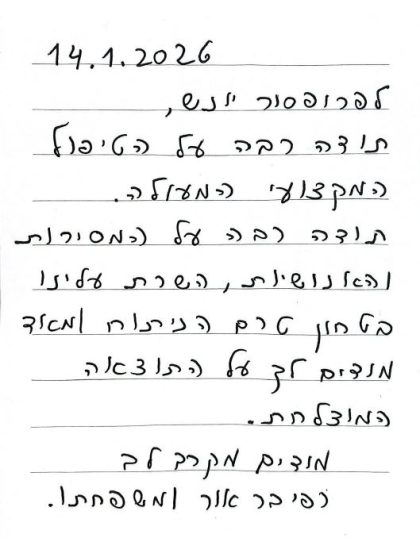 14.1.2026
לפרופסור יונש,
תודה רבה על הטיפול
המקצועי המעולה.
תודה רבה על המסירות
והאנושיות, השרת עלינו
בטחון טרם הניתוח ומאוד
מודים לך על התוצאה
המוצלחת.
מודים מקרב לב
רפי בר אור ומשפחתו.